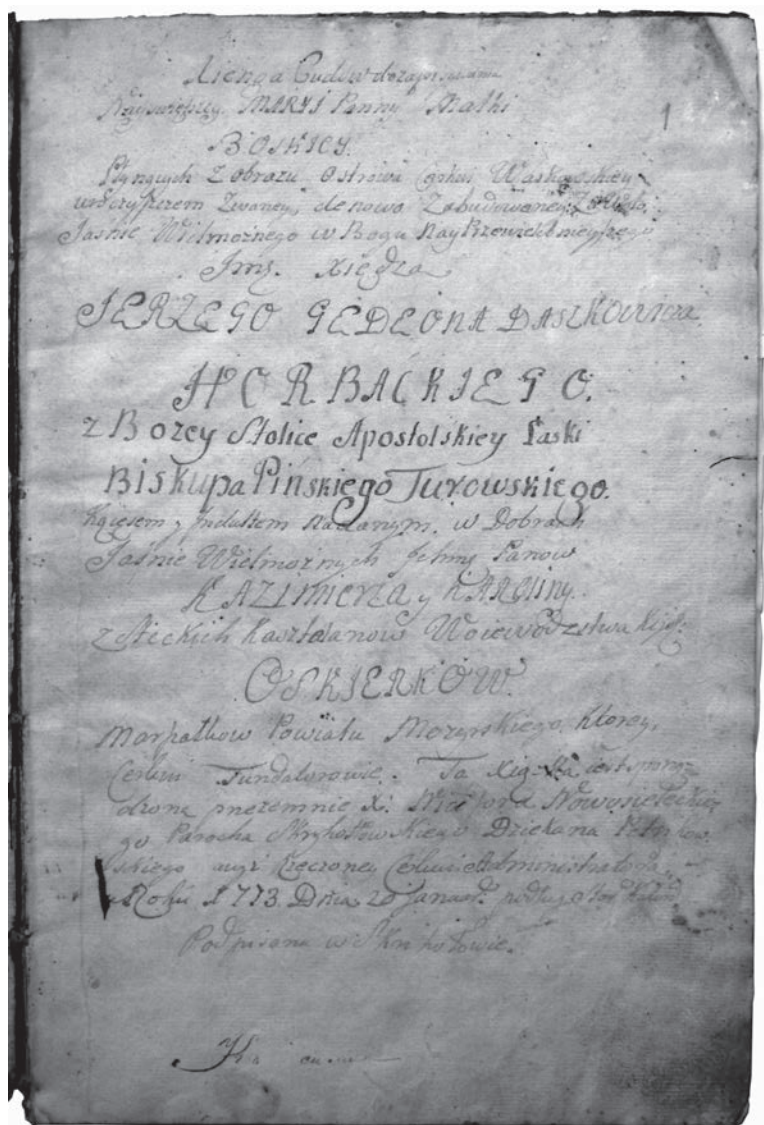 Xienga Cudow do zapisywania
Nayswiętszy MARYI Panny Matki
BOSKIEY.
Płynących Z obrazu Ostrowa Cerkwi Waskowskiey
uroczyszczem Zwaney, de novo Zabudowaney, Za
Jaśnie Wielmożnego w Bogu Nay Przewielebnieyszego
Jmś. Xiędza
JERZEGO GEDEONA DASZKOWICZA
HORBACKIEGO.
z Bozey Stolice Apostolskiey Łaski
Biskupa Pińskiego Turowskiego.
y Indultem nadanym w Dobrach
Jaśnie Wielmożnych Jchmś Panow
KAZIMIERZA y KAROLINY.
z Steckich Kasztelanow Woiewodzstwa Kijo:
OSKIERKÓW.
Marszałkow Powiatu Mozyrskiego, Ktorey,
Cerkwi Fundatorowie. Ta Xiąszka iest sporzą-
dzona przezemnie X: Nowosieleckie-
go Parocha Skryhołowskiego Dziekana Petrykow-
skiego rzeczoney Cerkwi Administratora
Roku 1773 Dnia 20 Januar: podług
Podpisana w Skrihołowie.